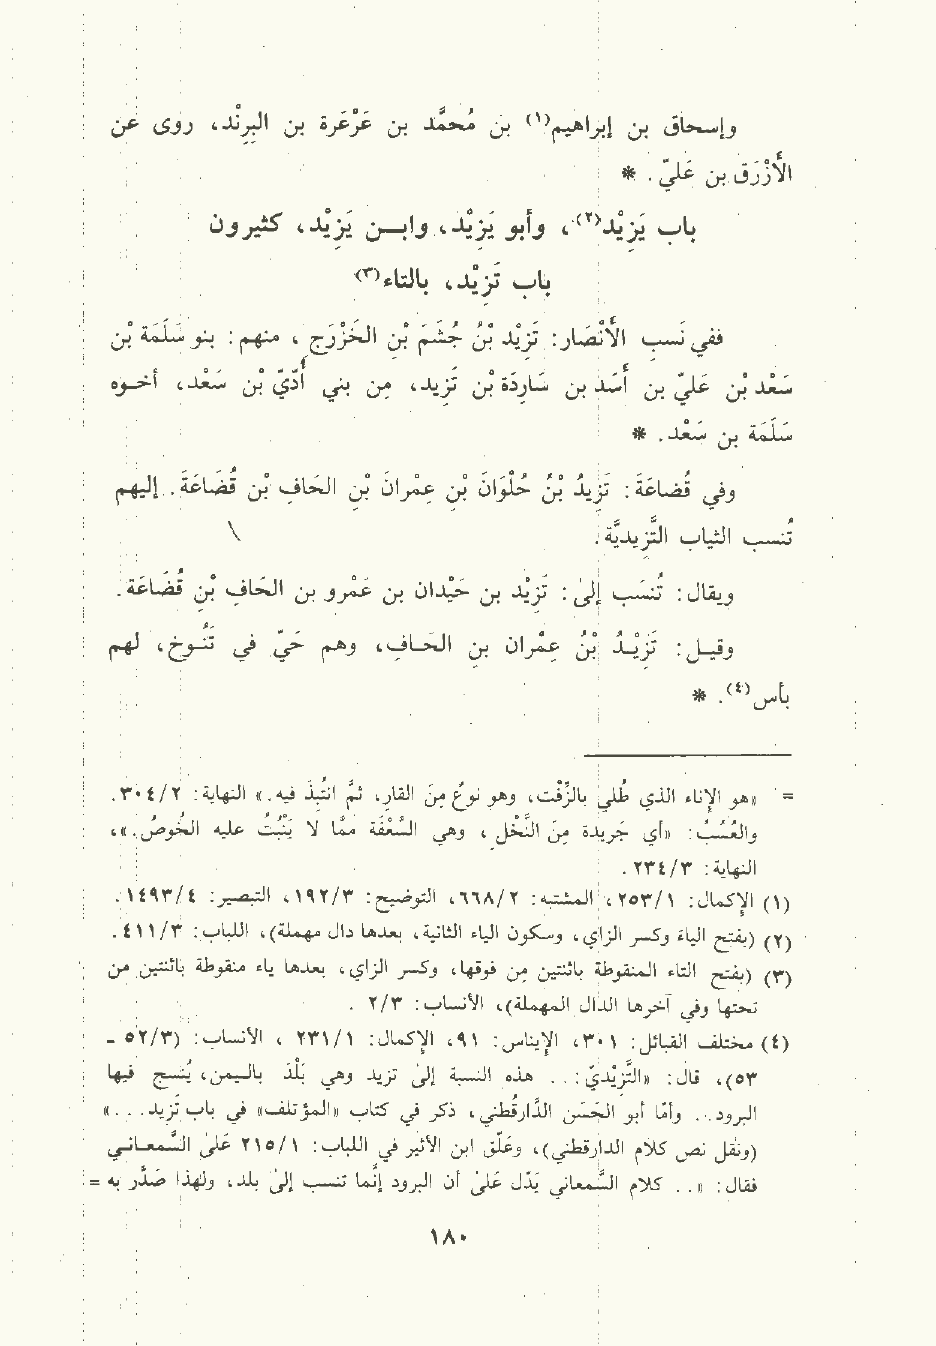 وإسحاق بن إبراهيم(١) بن مُحمَّد بن عَرْعَرة بن البِرِنْد، روى عن
الأَزْرَق بن عَليّ. *
باب يَزِيْد(٢)، وأبو يَزِيْد، وابـن يَزِيْد، كثيرون
باب تَزِيْد، بالتاء(٣)
ففي نَسبِ الأَنْصَار: تَزِيْد بْنُ جُشَمَ بْنِ الخَزْرَجِ، منهم: بنو سَلَمَة بْن
سَعْد بْن عَليّ بن أَسَد بن سَارِدَة بْن تَزِيد، مِن بني أُدّيّ بْن سَعْد، أخـوه
سَلَمَة بن سَعْد. *
وفي قُضاعَة: تَزِيدُ بْنُ حُلْوَانَ بْنِ عِمْرانَ بْنِ الحَافِ بْنِ قُضَاعَةَ. إليهم
تُنسب الثياب التَّزِيديَّة.
ويقال: تُنسَب إلىٰ: تَزِيْد بن حَيْدان بن عَمْرو بن الحَافِ بْنِ قُضَاعَة.
وقيـل: تَزِيْـدُ بْنُ عِمْران بنِ الحَـافِ، وهم حَيّ في تَنُـوخ، لهم
بأس(٤). *
= «هو الإناء الذي طُلي بالزِّفْت، وهو نوعٌ مِنَ القار، ثمَّ انتُبِذَ فيه.» النهاية: ٣٠٤/٢.
والعُسُبُ: «أي جَريدة مِنَ النَّخْل، وهي السُّعْفَة ممَّا لا يَنْبُتُ عليه الخُوصُ.»،
النهاية: ٢٣٤/٣.
(١) الإكمال: ٢٥٣/١، المشتبه: ٦٦٨/٢، التوضيح: ١٩٢/٣، التبصير: ١٤٩٣/٤.
(٢) (بفتح الياء وكسر الزاي، وسكون الياء الثانية، بعدها دال مهملة)، اللباب: ٤١١/٣.
(٣) (بفتح التاء المنقوطة باثنتين مِن فوقها، وكسر الزاي، بعدها ياء منقوطة باثنتين من
تحتها وفي آخرها الدال المهملة)، الأنساب: ٢/٣.
(٤) مختلف القبائل: ٣٠١، الإيناس: ٩١، الإكمال: ٢٣١/١، الأنساب: (٥٢/٣ -
٥٣)، قال: «التَّزِيْديّ: .. هذه النسبة إلىٰ تزيد وهي بَلَدْ باليـمن، يُنسج فيها
البرود... وأمّا أبو الحَسَن الدَّارقُطني، ذكر في كتاب «المؤتلف» في باب تَزيد...»
(ونقل نص كلام الدارقطني)، وعَلّق ابن الأثير في اللباب: ٢١٥/١ علىٰ السَّمعانـي
فقال: «.. كلام السَّمعاني يَدّل عَلىٰ أن البرود إنَّما تنسب إلىٰ بلد، ولهذا صَدَّر به =
١٨٠